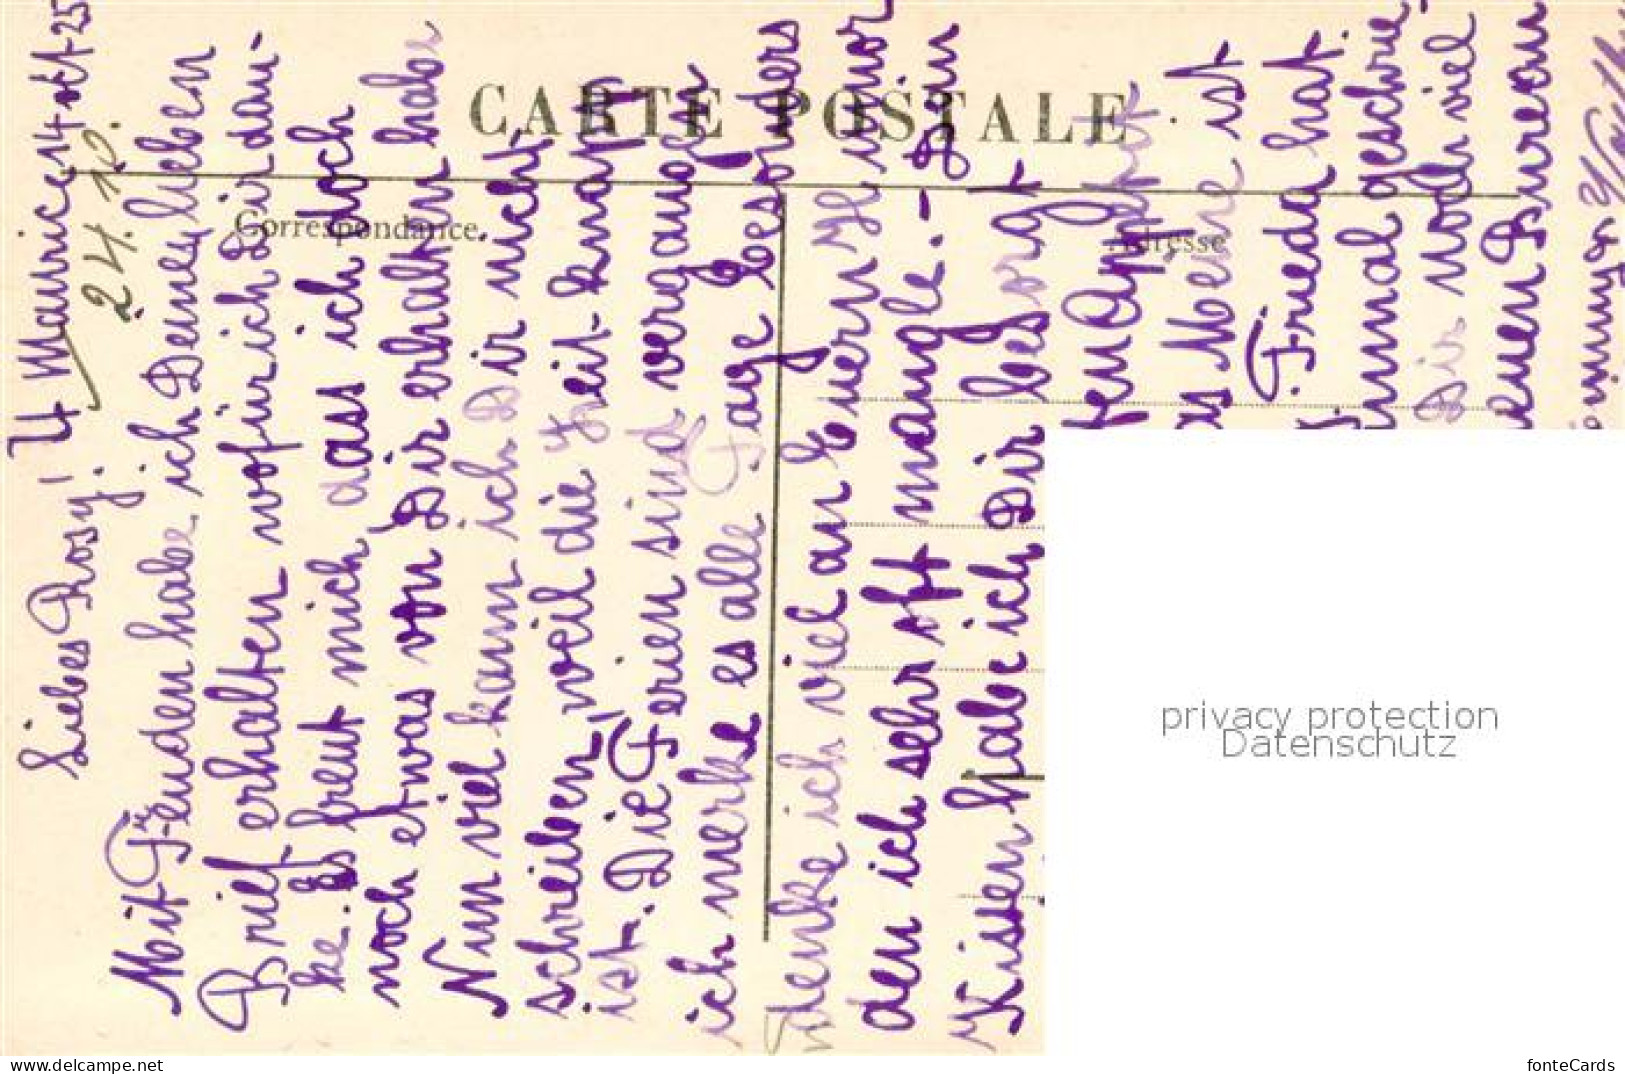 CARTE POSTALE
Correspondance.
Adresse
St Maurice 14 okt 25
24.10.
Liebes Rosy!
Mit Freuden habe ich Deinen lieben
Brief erhalten wofür ich Dir dan-
ke. Es freut mich dass ich doch
noch etwas von Dir erhalten habe
Nun viel kann ich Dir nicht
schreiben, weil die Zeit knapp
ist. Die Ferien sind vergangen
ich merke es alle Tage besonders
denke ich viel an Euern Humor
den ich sehr oft mangle. - Dein
Kissen habe ich Dir besorgt
ten
as Meine ist
Frieda hat.
nmal geschrie-
Dir noch viel
euen Bureau
privacy protection
Datenschutz
My fonteCards
fonteCards